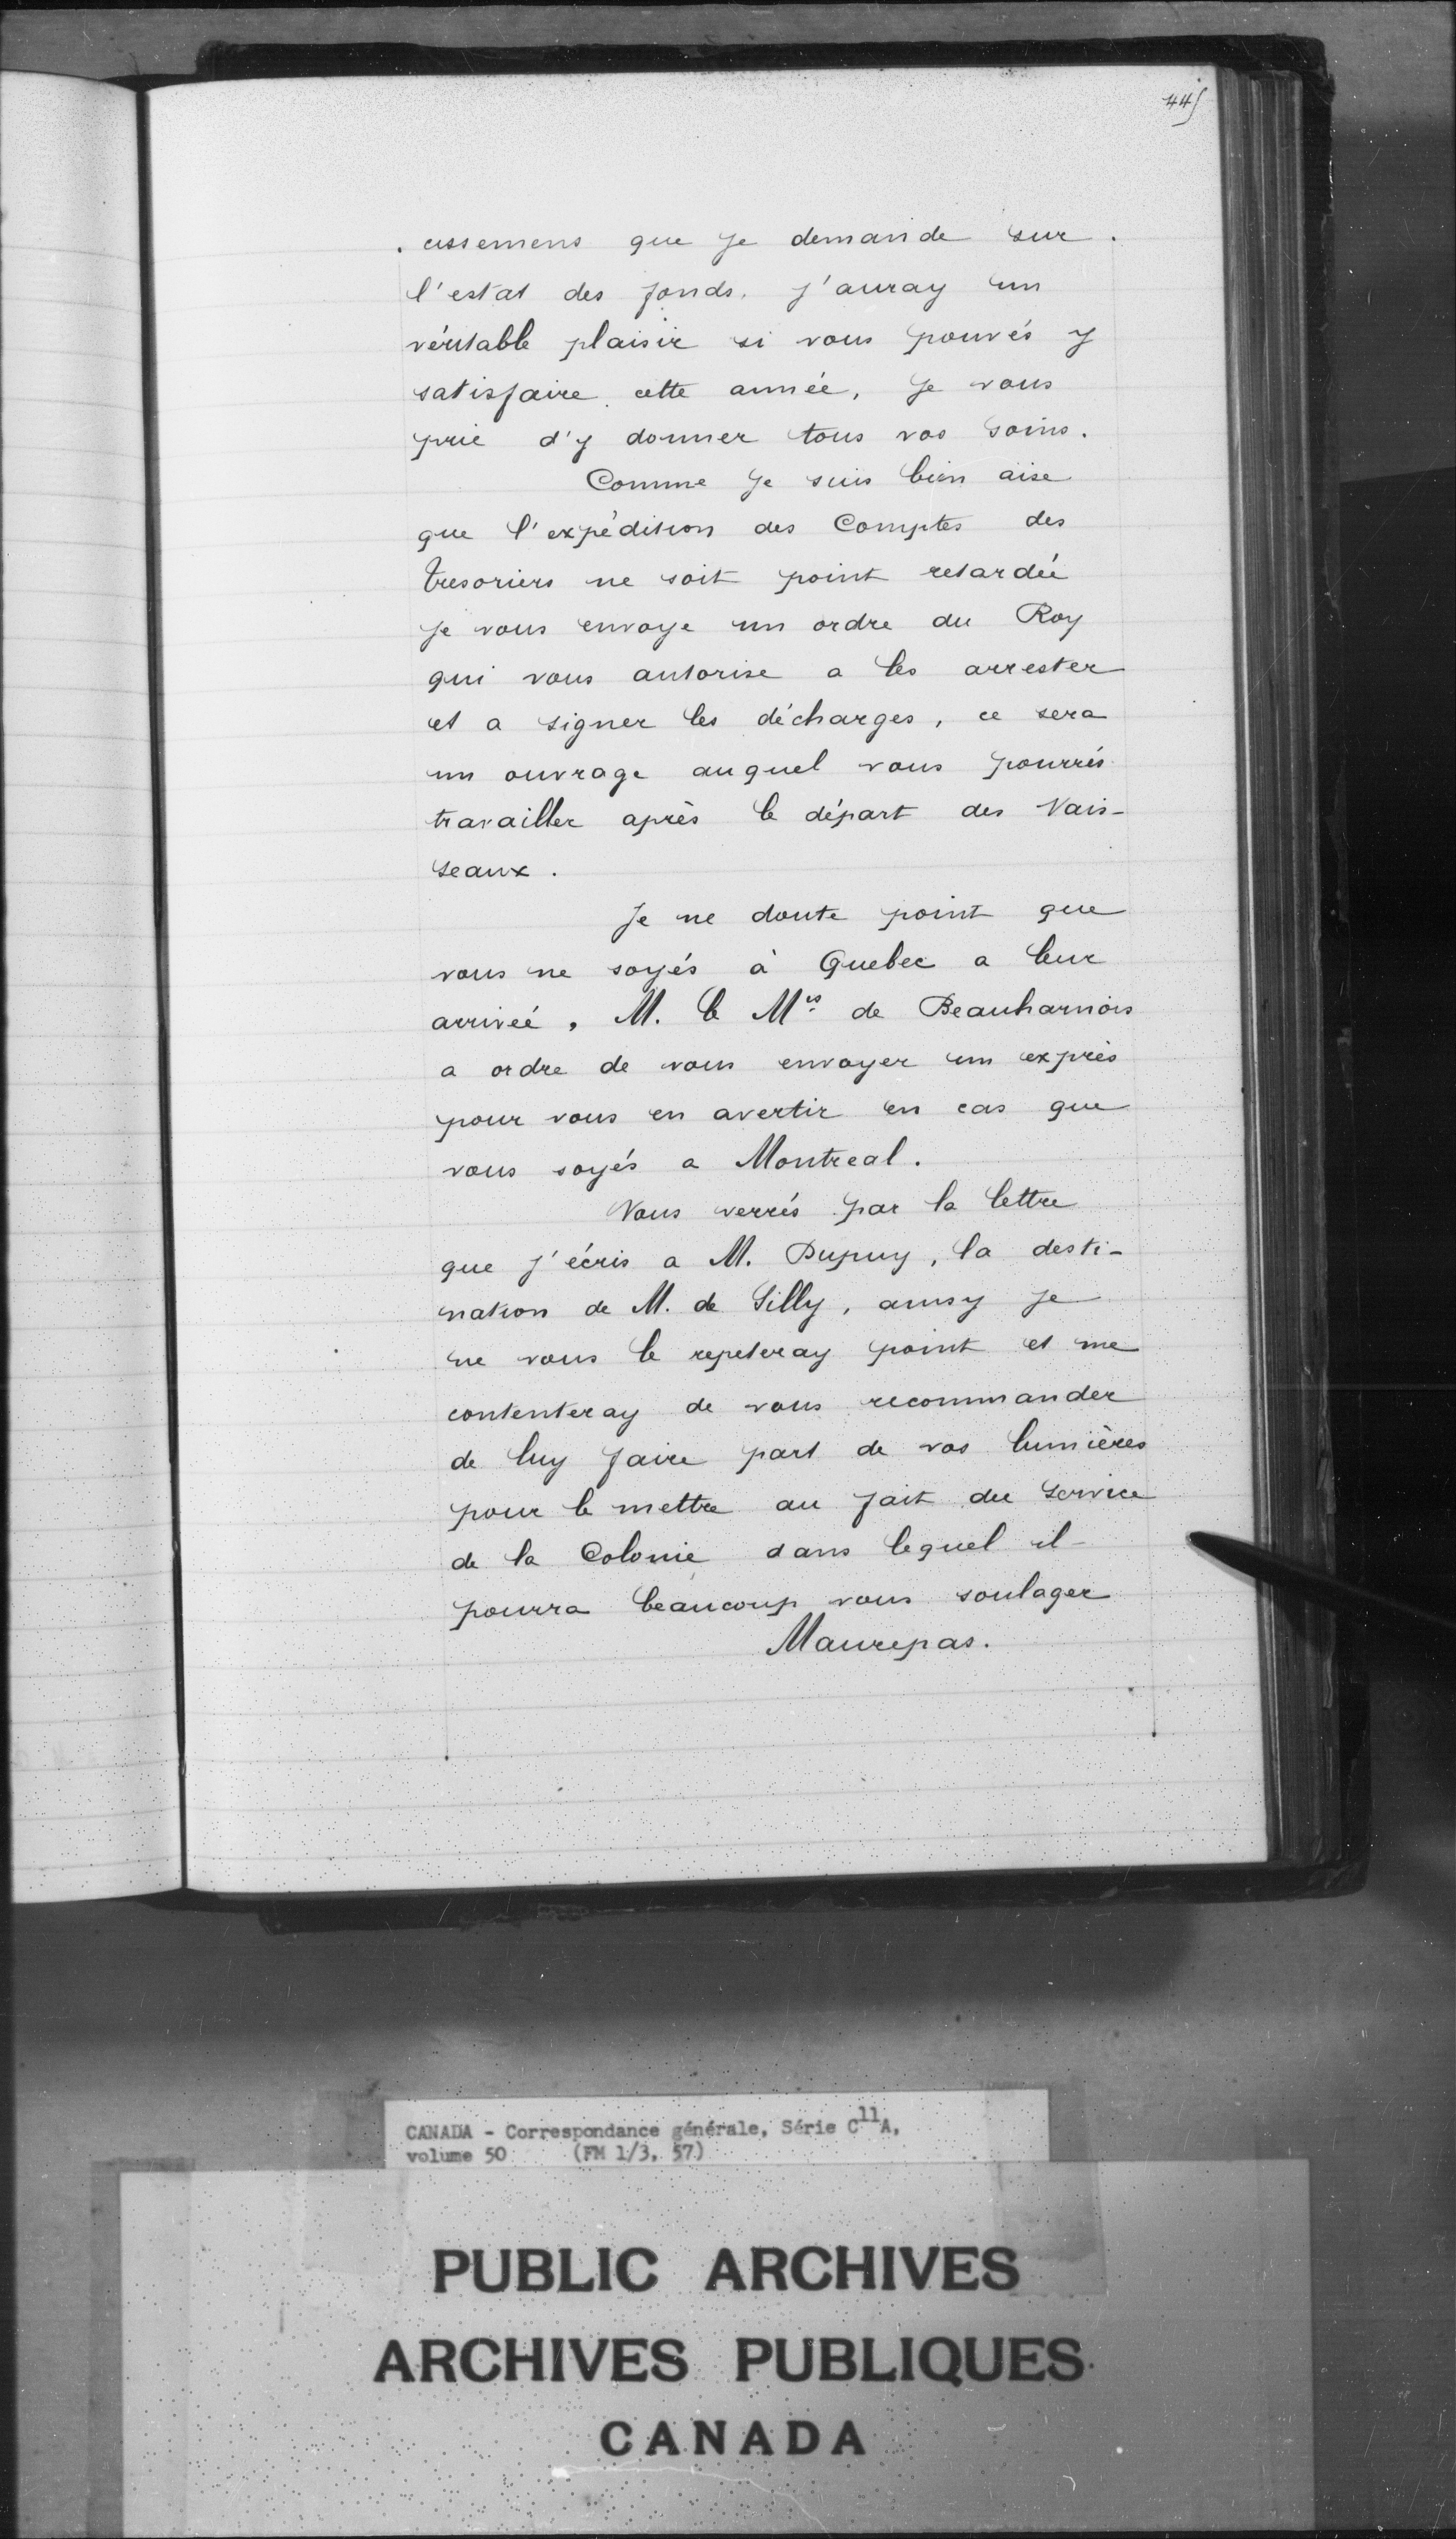 445
cissemens que je demande sur
l'estat des fonds. j'auray un
véritable plaisir si vous pouvés y
satisfaire cette année, je vous
prie d'y donner tous vos soins.
Comme je suis bien aise
que l'expédition des Comptes des
tresoriers ne soit point retardée
je vous envoye un ordre du Roy
qui vous autorise a les arrester
et a signer les décharges, ce sera
un ouvrage auquel vous pourrés
travailler après le départ des Vais-
seaux.
Je ne doute point que
vous ne soyés à Quebec a leur
arrivée, M. le Mis de Beauharnois
a ordre de vous envoyer un exprès
pour vous en avertir en cas que
vous soyés a Montreal.
Vous verrés par la lettre
que j'écris a M. Dupuy, la desti-
nation de M. de Silly, ainsy je
ne vous le repeteray point et me
contenteray de vous recommander
de luy faire part de vos lumières
pour le mettre au fait du service
de la Colonie dans lequel il
pourra beaucoup vous soulager
Maurepas.
CANADA - Correspondance générale, Série C11A,
volume 50 (FM 1/3, 57)
PUBLIC ARCHIVES
ARCHIVES PUBLIQUES
CANADA